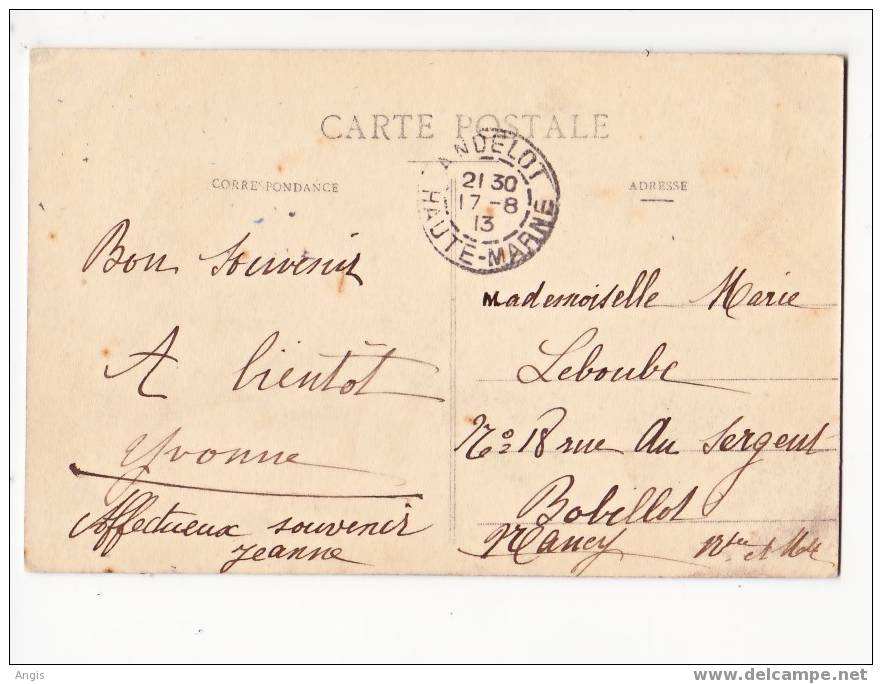 CARTE POSTALE
CORRESPONDANCE
ADRESSE
ANDELOT
21 30
17-8
13
HAUTE-MARNE
Bon souvenir
A bientôt
Yvonne
Affectueux souvenir
Jeanne
Mademoiselle Marie
Leboube
No 18 rue du Sergent
Bobillot
Nancy
et
Angis
delcampe.net